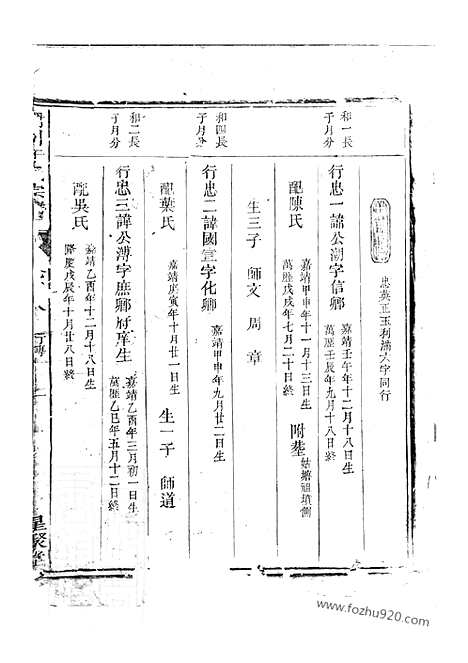 忠英正玉利满六字同行
和一長
子月分
行忠一諱公湖字信卿
嘉靖壬午年十二月十八日生
萬歷壬辰年九月十八日終
配陳氏
嘉靖甲申年十一月十三日生
萬歷戊戌年七月二十日終
附塟
姑塘祖墳側
生三子 師文 周 章
和四長
子月分
行忠二諱國宣字化卿
嘉靖甲申年九月廿二日生
配葉氏
嘉靖庚寅年十月廿一日生
生一子 師道
和二長
子月分
行忠三諱公溥字庶卿府庠生
嘉靖乙酉年三月初一日生
萬歷乙巳年五月十二日終
配吳氏
嘉靖乙酉年十二月十八日生
隆慶戊辰年十月廿八日終
星聚堂
www.fozhu920.com